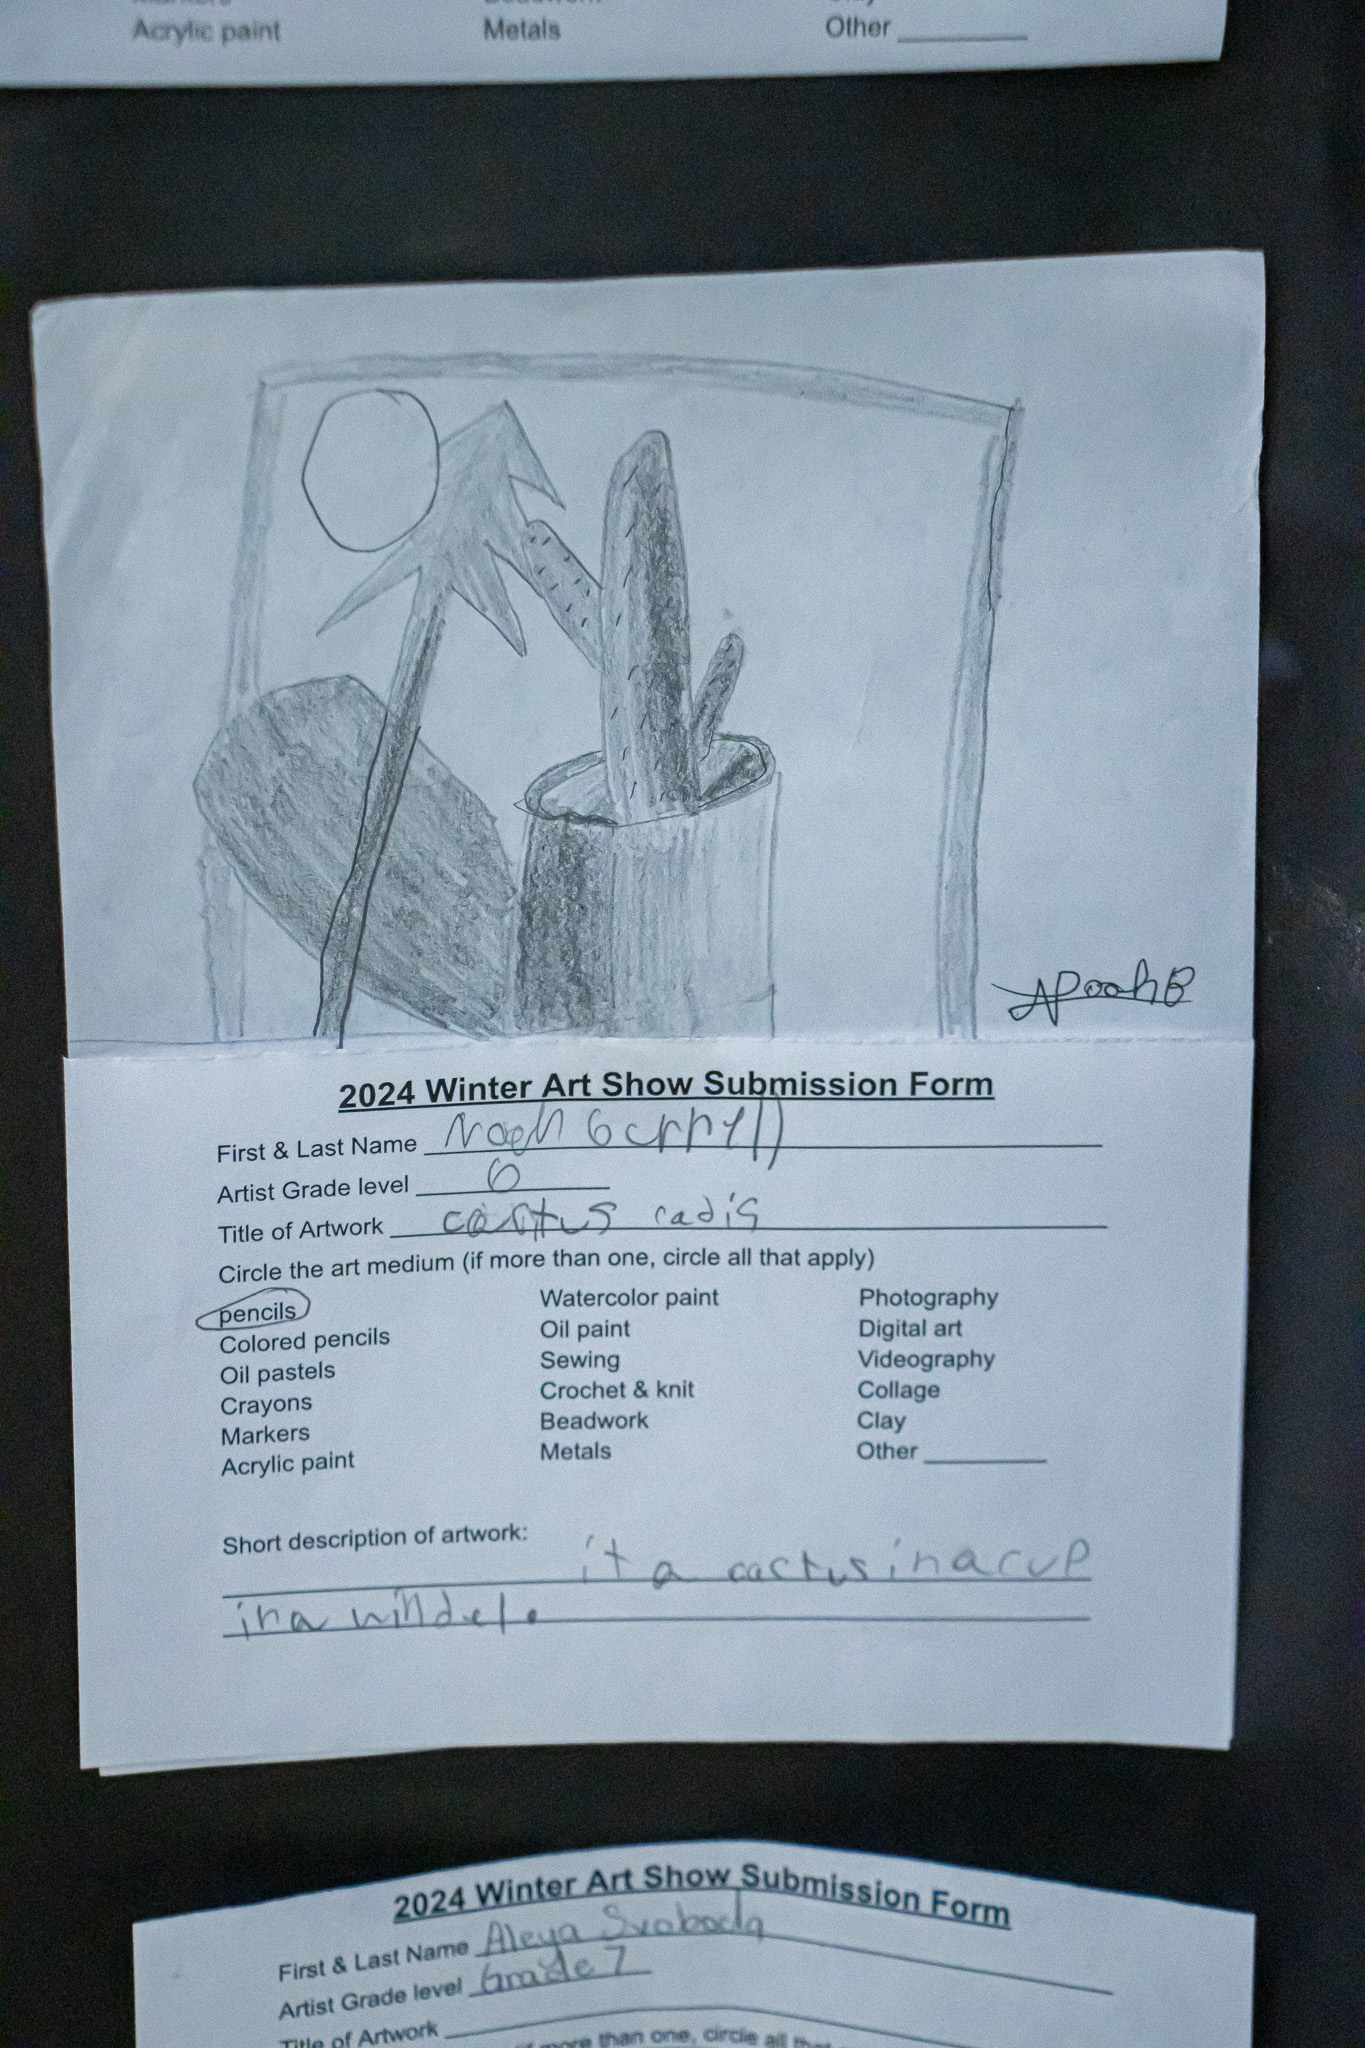 Acrylic paint Metals Other
NoahB
2024 Winter Art Show Submission Form
First & Last Name Noah
Artist Grade level 6
Title of Artwork cactus radis
Circle the art medium (if more than one, circle all that apply)
pencils Watercolor paint Photography
Colored pencils Oil paint Digital art
Oil pastels Sewing Videography
Crayons Crochet & knit Collage
Markers Beadwork Clay
Acrylic paint Metals Other
Short description of artwork:
it a cactus in a cup
in a
2024 Winter Art Show Submission Form
First & Last Name Aleya Svoboda
Artist Grade level Grade 7
Title of Artwork
more than one, circle all